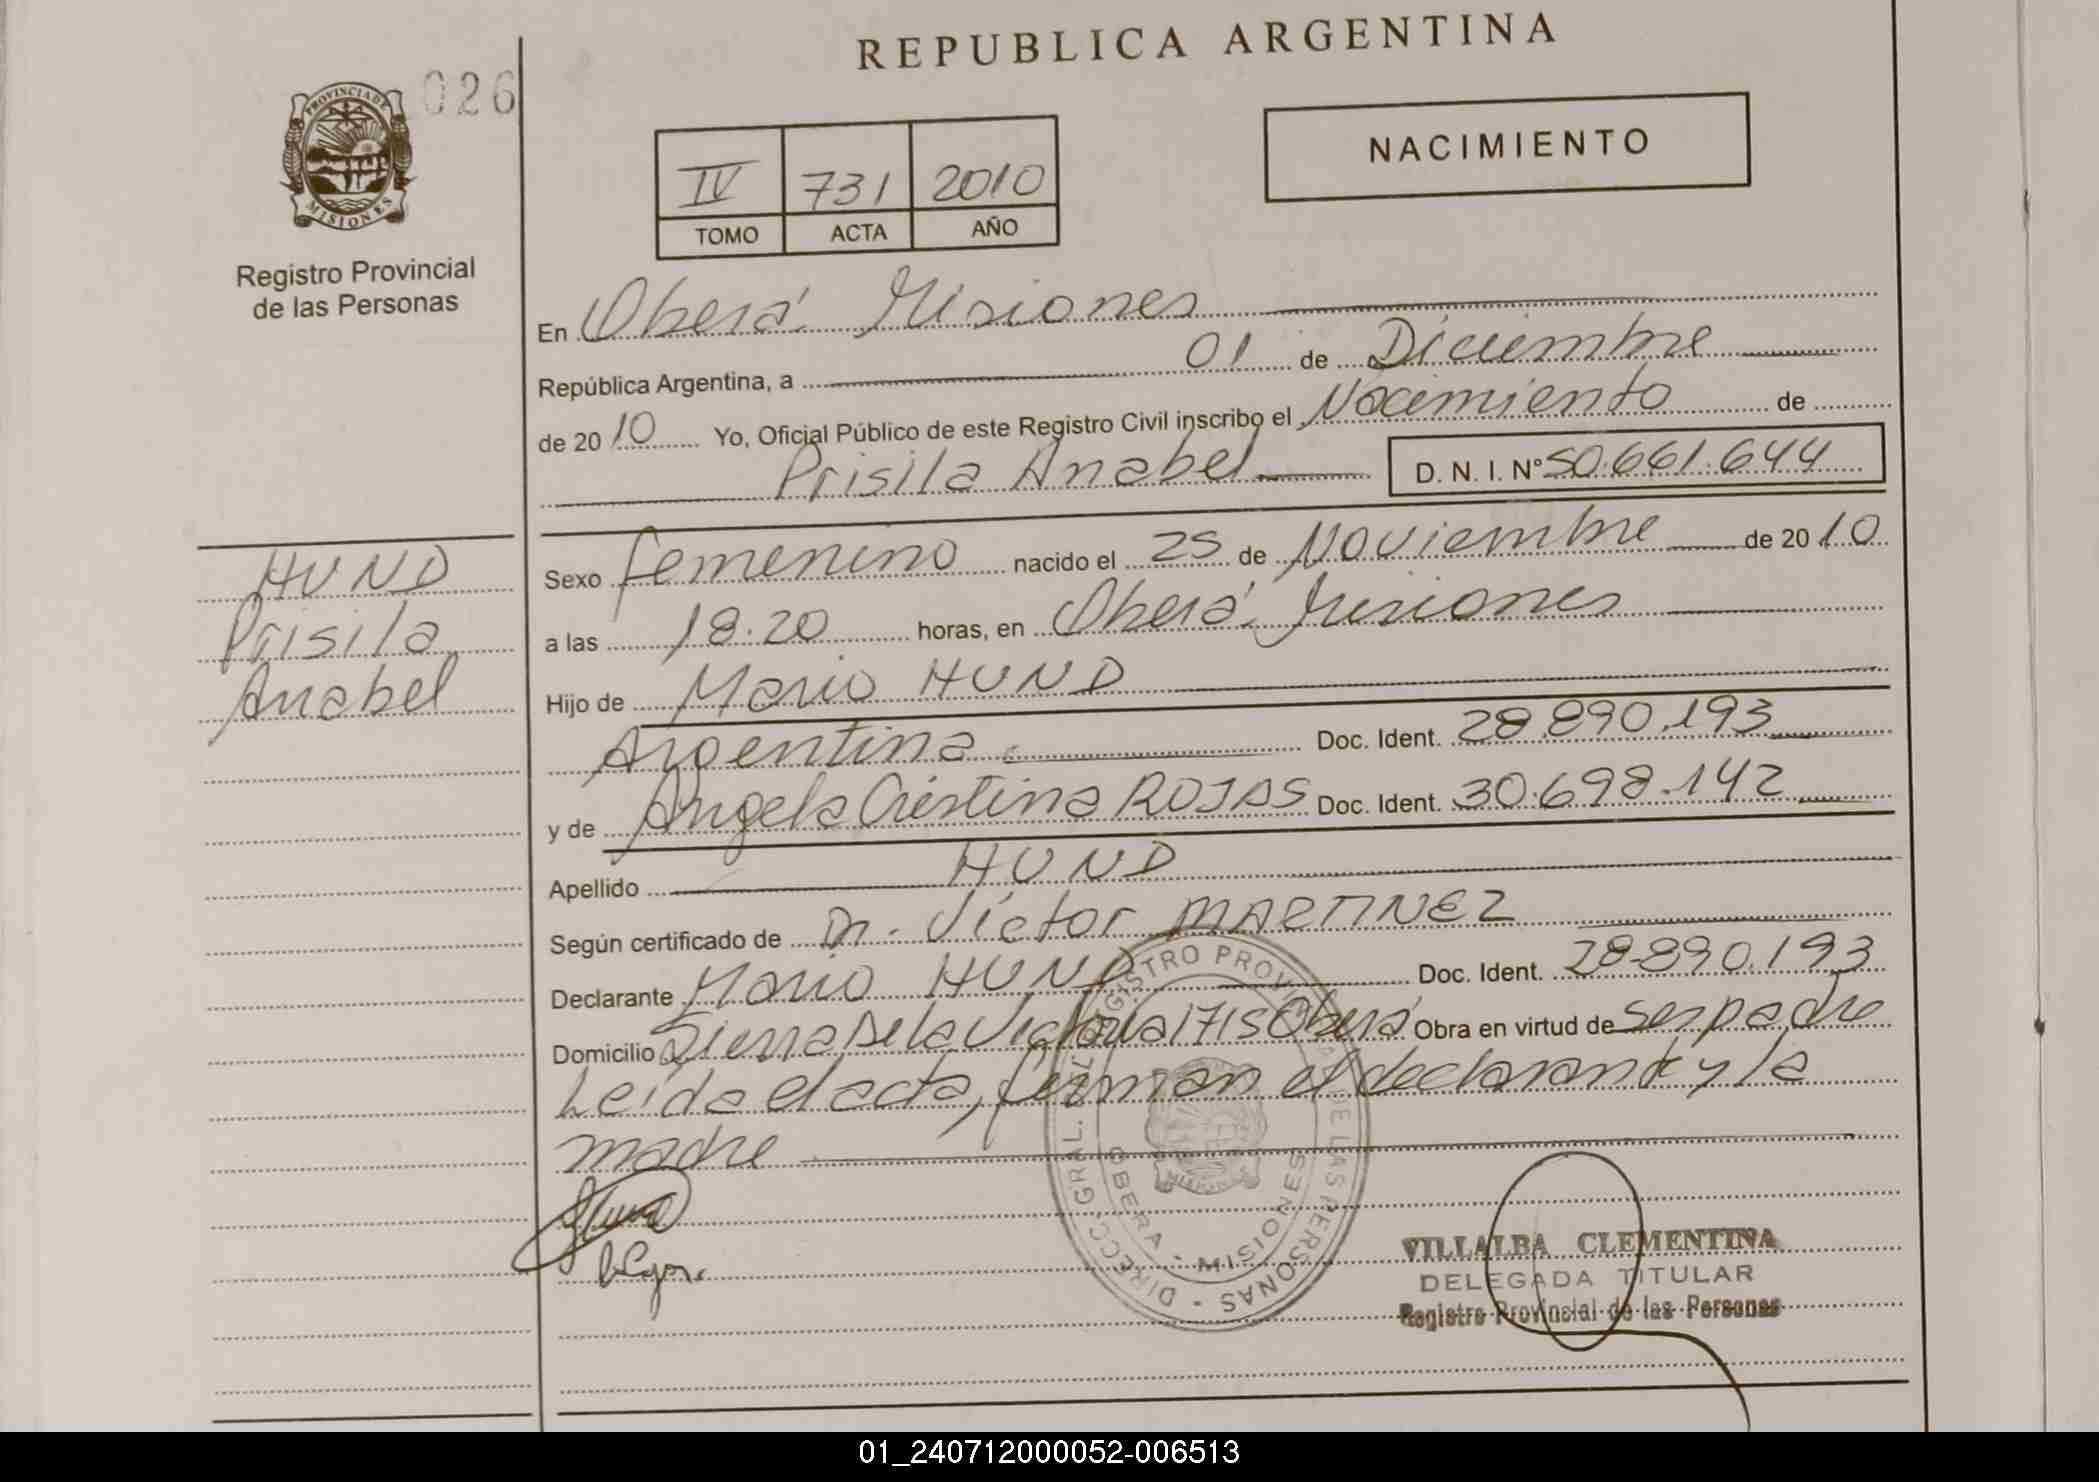 REPUBLICA ARGENTINA
026
PROVINCIA DE
MISIONES
Registro Provincial
de las Personas
IV 731 2010
TOMO ACTA AÑO
NACIMIENTO
En Oberá Misiones
República Argentina, a 01 de Diciembre
de 20 10 Yo, Oficial Público de este Registro Civil inscribo el Nacimiento de
Prisila Anabel D. N. I. Nº 50.661.644
HUND
Prisila
Anabel
Sexo femenino nacido el 25 de Noviembre de 20 10
a las 18.20 horas, en Oberá. Misiones
Hijo de Mario HUND
Argentina. Doc. Ident. 28.890.193
y de Angela Cristina ROJAS Doc. Ident. 30.698.142
Apellido HUND
Según certificado de Dr. Victor MARTINEZ
Declarante Mario HUND Doc. Ident. 28.890.193
Domicilio Sierra De la Victoria 1715 Oberá Obra en virtud de ser padre
Leida el acta, firman el declarante y la
madre
DIRECC. GRAL. DEL REGISTRO PROVINCIAL DE LAS PERSONAS
OBERA - MISIONES
VILLALBA CLEMENTINA
DELEGADA TITULAR
Registro Provincial de las Personas
01_240712000052-006513